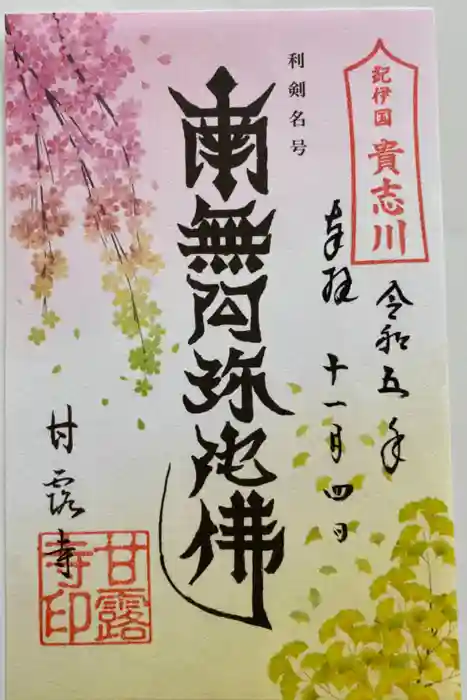 紀伊国 貴志川
奉拝
令和五年
十一月四日
利剣名号
南無阿弥陀佛
甘露寺
甘露寺印